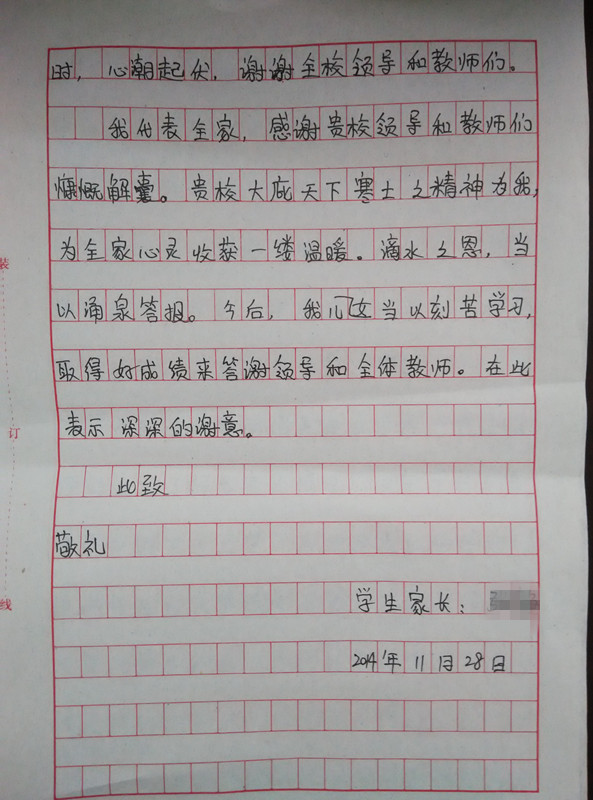 时，心潮起伏，谢谢全校领导和教师们。
我代表全家，感谢贵校领导和教师们
慷慨解囊。贵校大庇天下寒士之精神为我，
为全家心灵收获一缕温暖。滴水之恩，当
以涌泉答报。今后，我儿女当以刻苦学习，
取得好成绩来答谢领导和全体教师。在此
表示深深的谢意。
此致
敬礼
学生家长：
2014年11月28日
装
订
线